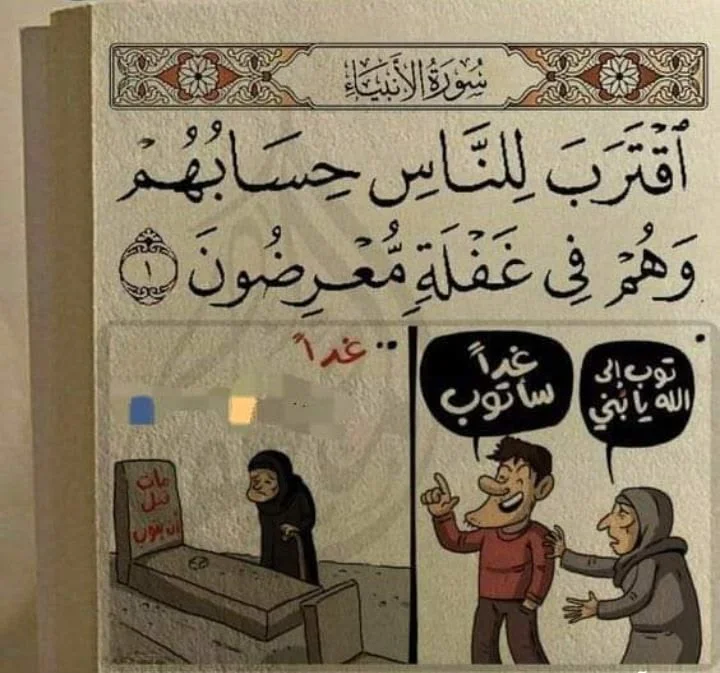 سُورَةُ الأَنبِيَاءِ
ٱقْتَرَبَ لِلنَّاسِ حِسَابُهُمْ
وَهُمْ فِي غَفْلَةٍ مُّعْرِضُونَ ١
توب إلى
الله يا بُني
غداً
سأتوب
غداً ..
مات
قبل
أن يتوب